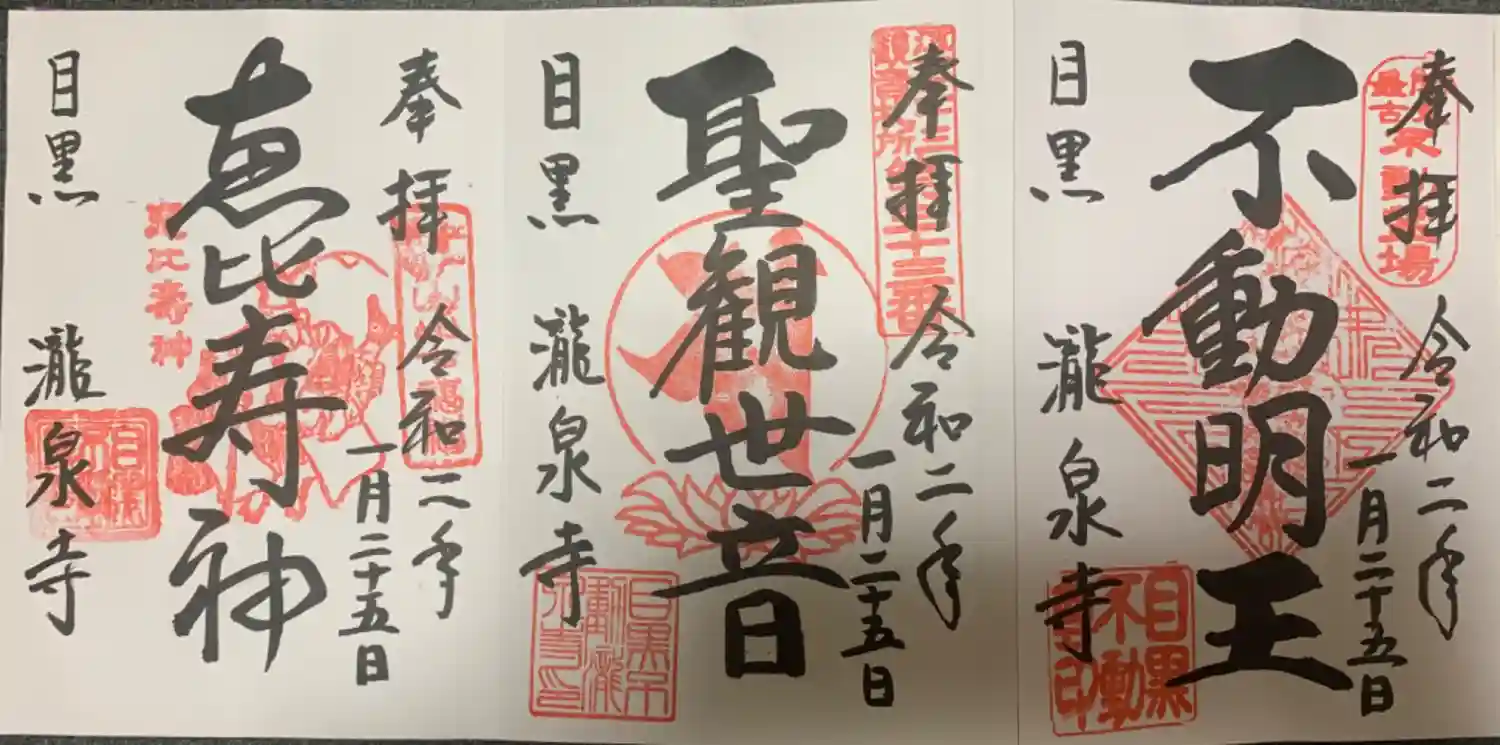 奉拝
令和二年
一月二十五日
不動明王
目黒
瀧泉寺
目黒不動
奉拝
令和二年
一月二十五日
聖観世音
目黒
瀧泉寺
奉拝
令和二年
一月二十五日
恵比寿神
恵比寿神
目黒
瀧泉寺